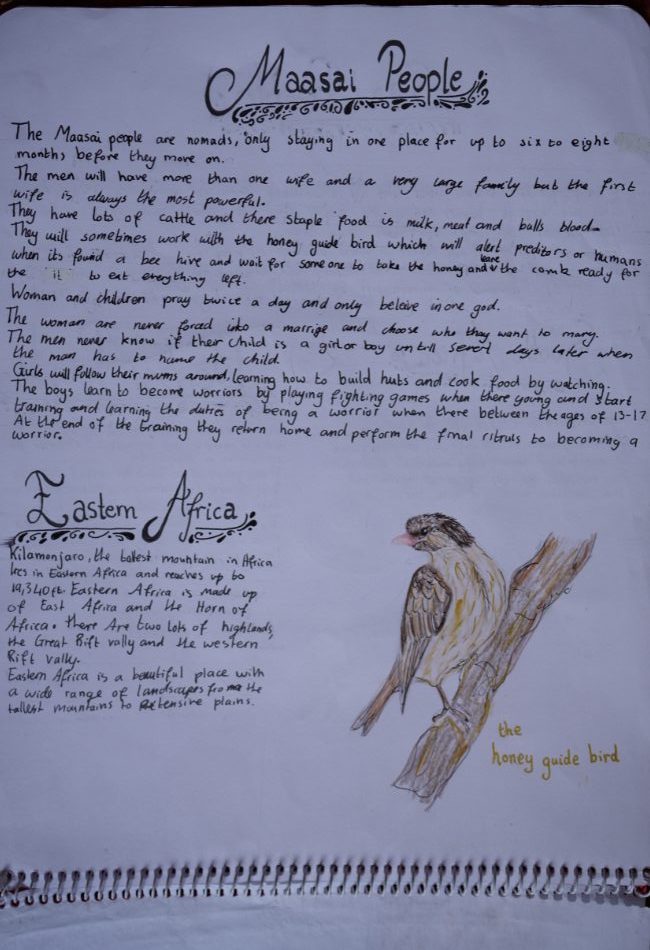 Maasai People
The Maasai people are nomads, only staying in one place for up to six to eight
months before they move on.
The men will have more than one wife and a very large family but the first
wife is always the most powerful.
They have lots of cattle and there staple food is milk, meat and bulls blood.
They will sometimes work with the honey guide bird which will alert preditors or humans
when its found a bee hive and wait for someone to take the honey and leave the comb ready for
the it to eat everything left.
Woman and children pray twice a day and only beleive in one god.
The woman are never forced into a marrige and choose who they want to marry.
The men never know if their child is a girl or boy untill days later when
the man has to name the child.
Girls will follow their mums around, learning how to build huts and cook food by watching.
The boys learn to become worriors by playing fighting games when there young and start
training and learning the duties of being a worrior when there between the ages of 13-17
At the end of the training they return home and perform the final rituls to becoming a
worrior.
Eastern Africa
Kilamonjaro, the tallest mountain in Africa
lies in Eastern Africa and reaches up to
19,340ft. Eastern Africa is made up
of East Africa and the Horn of
Africa. there Are two lots of highlands,
the Great Rift vally and the western
Rift vally.
Eastern Africa is a beautiful place with
a wide range of landscapes from the
tallest mountains to extensive plains.
the
honey guide bird